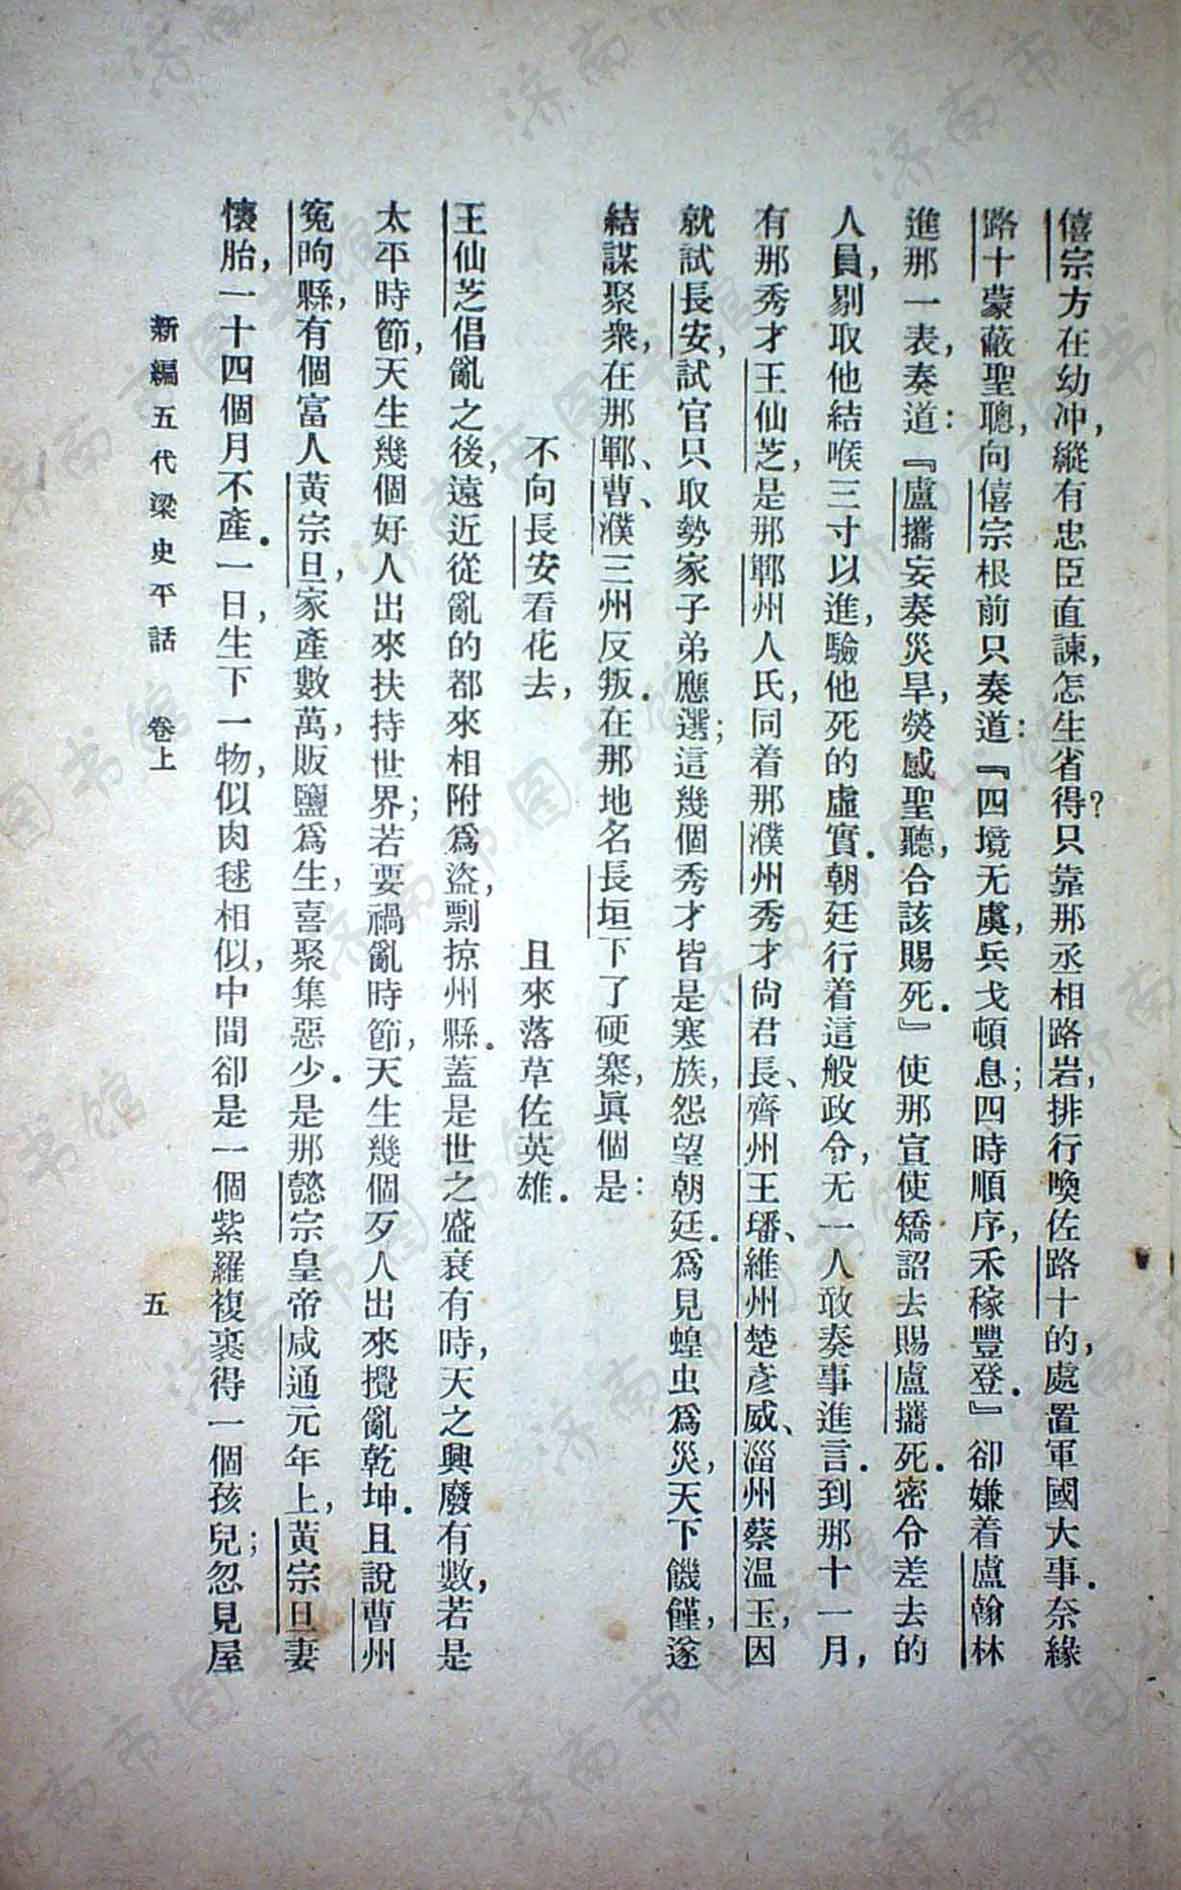 僖宗方在幼冲，縱有忠臣直諫，怎生省得？只靠那丞相路岩，排行喚佐路十的，處置軍國大事．奈緣
路十蒙蔽聖聰，向僖宗根前只奏道：『四境无虞，兵戈頓息；四時順序，禾稼豐登．』卻嫌着盧翰林
進那一表，奏道：『盧攜妄奏災旱，熒惑聖聽，合該賜死．』使那宣使矯詔去賜盧攜死．密令差去的
人員，剔取他結喉三寸以進，驗他死的虛實．朝廷行着這般政令，无一人敢奏事進言．到那十一月，
有那秀才王仙芝，是那鄆州人氏，同着那濮州秀才尙君長、齊州王璠、維州楚彥威、淄州蔡溫玉，因
就試長安，試官只取勢家子弟應選；這幾個秀才皆是寒族，怨望朝廷．爲見蝗虫爲災，天下饑饉，遂
結謀聚衆，在那鄆、曹、濮三州反叛．在那地名長垣下了硬寨，眞個是：
不向長安看花去，　且來落草佐英雄．
王仙芝倡亂之後，遠近從亂的都來相附爲盜，剽掠州縣．蓋是世之盛衰有時，天之興廢有數，若是
太平時節，天生幾個好人出來扶持世界；若要禍亂時節，天生幾個歹人出來攪亂乾坤．且說曹州
冤昫縣，有個富人黃宗旦，家產數萬，販鹽爲生，喜聚集惡少．是那懿宗皇帝咸通元年上，黃宗旦妻
懷胎，一十四個月不產．一日，生下一物，似肉毬相似，中間卻是一個紫羅複裹得一個孩兒；忽見屋
新編五代梁史平話　卷上　五
济南市图书馆